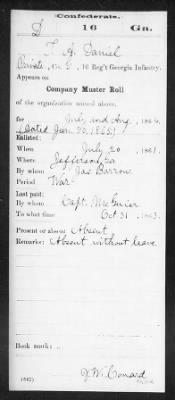 Confederate.
D 16 Ga.
T. A. Daniel
Private, Co. G, 16 Reg't Georgia Infantry.
Appears on
Company Muster Roll
of the organization named above,
for July and Aug, 1864.
(dated Jan 30, 1865)
Enlisted:
When July 20, 1861.
Where Jefferson, Ga
By whom Jas. Barrow
Period War
Last paid:
By whom Capt. McGuier
To what time Oct 31, 1863.
Present or absent Absent
Remarks: Absent without leave
Book mark:
(642) J. W. Conard